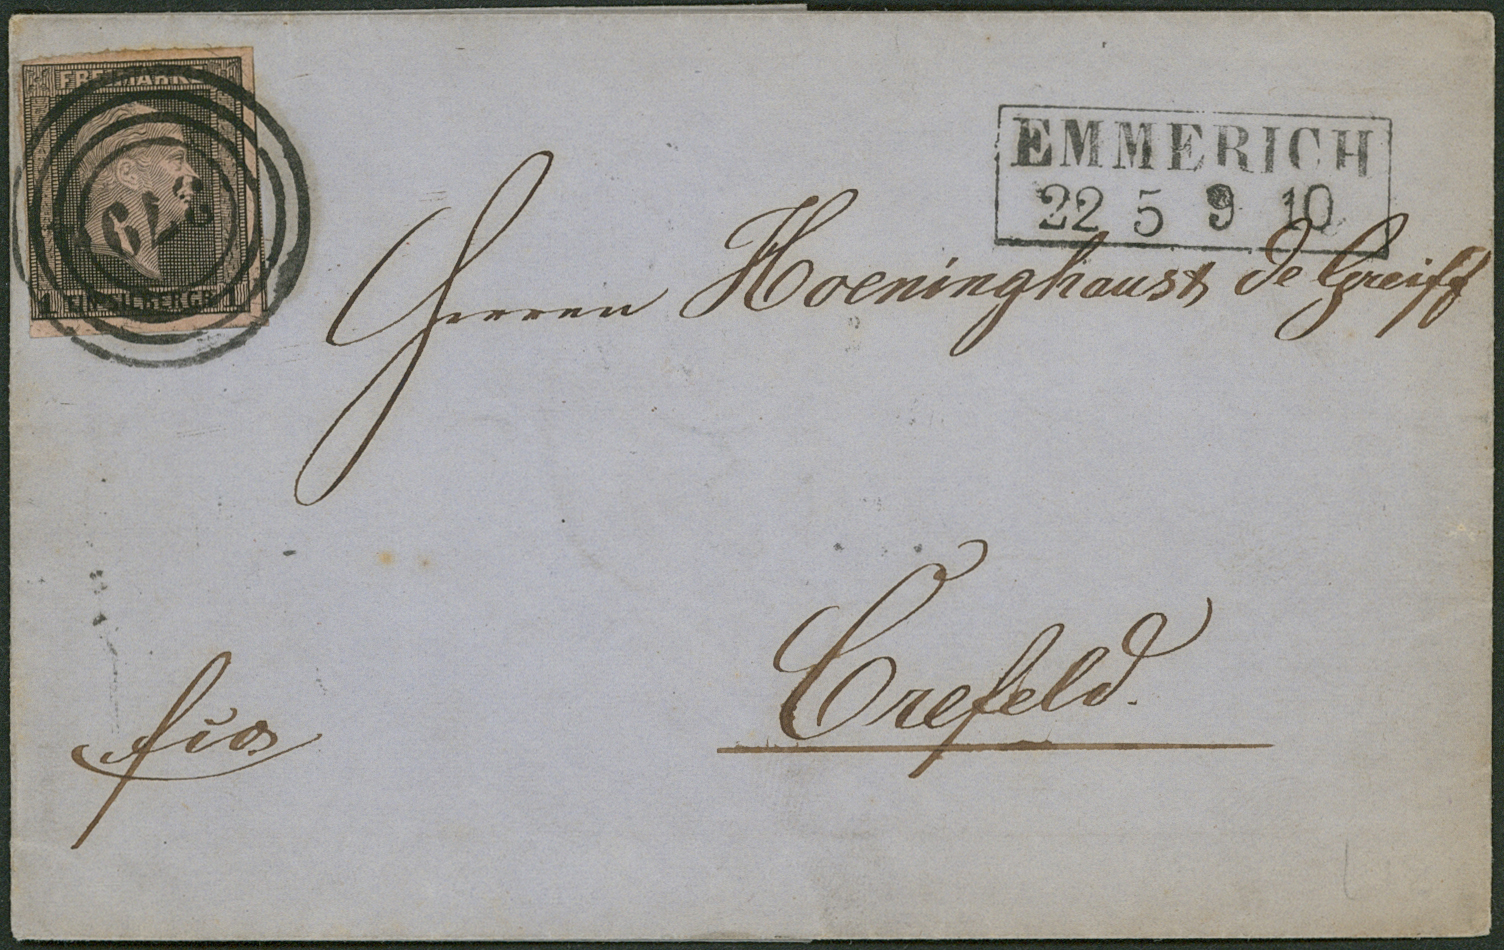 FREIMARKE
379
1 EIN SILBERGR. 1
EMMERICH
22 5 9 10
Herren Hoeninghaus & de Greiff
Crefeld.